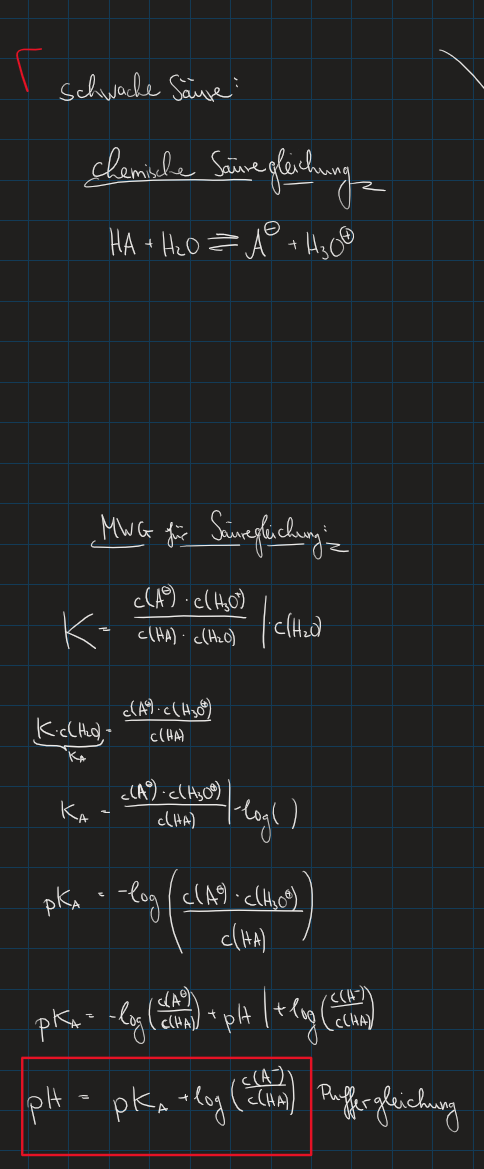 schwache Säure:
chemische Säuregleichung
HA + H₂O ⇌ A⊖ + H₃O⊕
MWG für Säuregleichung:
K = c(A⊖) · c(H₃O⁺) / c(HA) · c(H₂O) | · c(H₂O)
K · c(H₂O) = c(A⊖) · c(H₃O⊕) / c(HA)
K_A
K_A = c(A⊖) · c(H₃O⊕) / c(HA) | -log( )
pK_A = -log( c(A⊖) · c(H₃O⊕) / c(HA) )
pK_A = -log( c(A⊖) / c(HA) ) + pH | + log( c(A⁻) / c(HA) )
pH = pK_A + log( c(A⁻) / c(HA) ) Puffergleichung